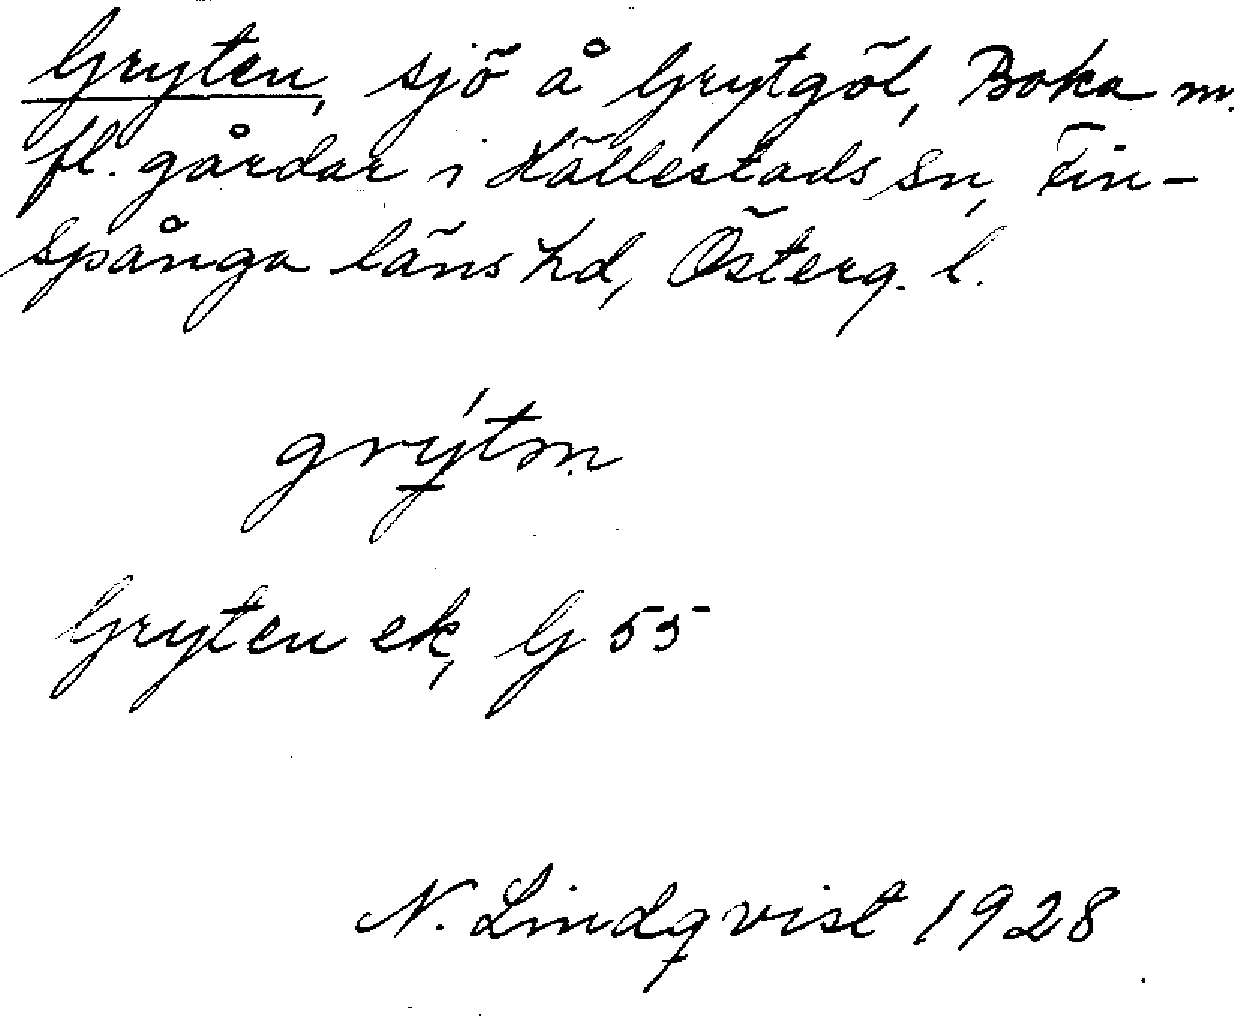 Gryten, sjö å Grytgöl, Boka m.
fl. gårdar i Hällestads sn, Fin-
spånga läns hd, Österg. l.
grýtn̥
Gryten ek, G 55
N. Lindqvist 1928